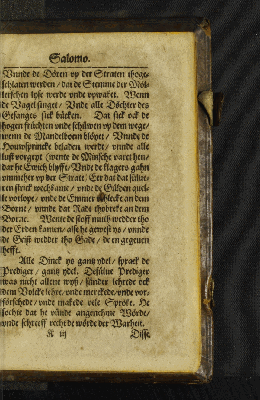 Salomo.
Vnnde de Dören vp der Straten thoge-
schlaten werden / dat de Stemme der Möl-
lerschen lyse werde vnde vpwaket. Wenn
de Vagel singet / Vnde alle Döchter des
Gesanges sick bücken. Dat sick ock de
hogen früchten vnde schüwen vp dem wege /
wenn de Mandelboem blöyet / Vnnde de
Houwsprincke beladen werdt / vnnde alle
lust vorgeyt (wente de Minsche varet hen /
dar he Ewich blyfft / Vnde de klagers gahn
vmmeher vp der Strate) Eer dat dat sülue-
ren strick wechkame / vnde de Gülden quel-
le vorlope / vnde de Emmer
an dem
Borne / vnnde dat Radt thobreke an dem
Borne. Wente de stoff moth wedder tho
der Erden kamen / alse he gewest ys / vnnde
de Geist wedder tho Gade / de en gegeuen
hefft.
Alle Dinck ys gantz ydel / sprack de
Prediger / gantz ydel. Desülue Prediger
was nicht allene wyß / sünder lehrede ock
dem Volcke lehre / vnde merckede / vnde vor-
förschede / vnde makede vele Spröke. He
sochte dat he vünde angenehme Wörde /
vnde schreeff recht de wörde der Warheit.
K iij
Disse